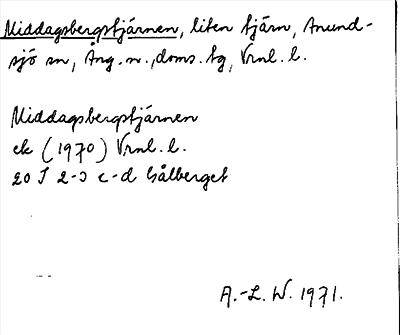 Middagsbergstjärnen, liten tjärn, Anund-
sjö sn, Ång. n., doms. tg, Vrnl. l.
Middagsbergstjärnen
ek (1970) Vrnl. l.
20 J 2-3 c-d Gålberget
A.-L. W. 1971.